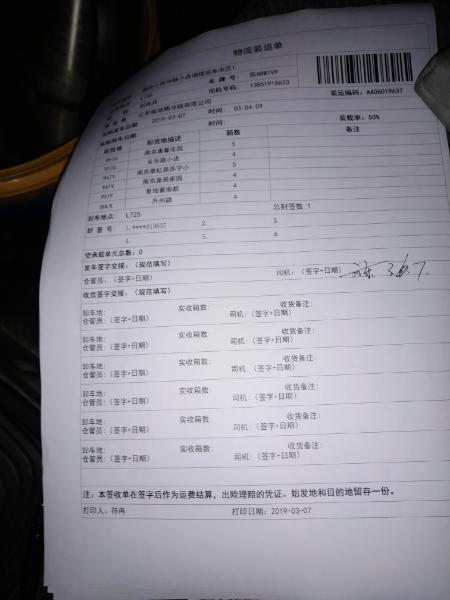 物流装运单
车 牌 号: 苏A8W1V9
司机号码: 13851918633
装运编码: AA06019637
2019-03-07 时间: 03:04:09
时间: 装载率: 50%
卸货地 卸货地描述 箱数 备注
南京康馨花园 5
长乐路小店 4
南京秦虹路苏宁小 5
4
复地宴南都 4
升州路 4
封车地点: L725 总封签数:1
封 签 号 1.****019637 2. 3.
4. 5. 6.
空承载单元总数: 0
发车签字交接: (规范填写)
仓管员: (签字+日期) 司机: (签字+日期)
收货签字交接: (规范填写)
卸车地: 实收箱数: 收货备注:
仓管员: (签字+日期) 司机: (签字+日期)
卸车地: 实收箱数: 收货备注:
仓管员: (签字+日期) 司机: (签字+日期)
卸车地: 实收箱数: 收货备注:
仓管员: (签字+日期) 司机: (签字+日期)
卸车地: 实收箱数: 收货备注:
仓管员: (签字+日期) 司机: (签字+日期)
卸车地: 实收箱数: 收货备注:
仓管员: (签字+日期) 司机: (签字+日期)
卸车地: 实收箱数: 收货备注:
仓管员: (签字+日期) 司机: (签字+日期)
注: 本签收单在签字后作为运费结算, 出险理赔的凭证。始发地和目的地留存一份。
打印人: 符冉 打印日期: 2019-03-07